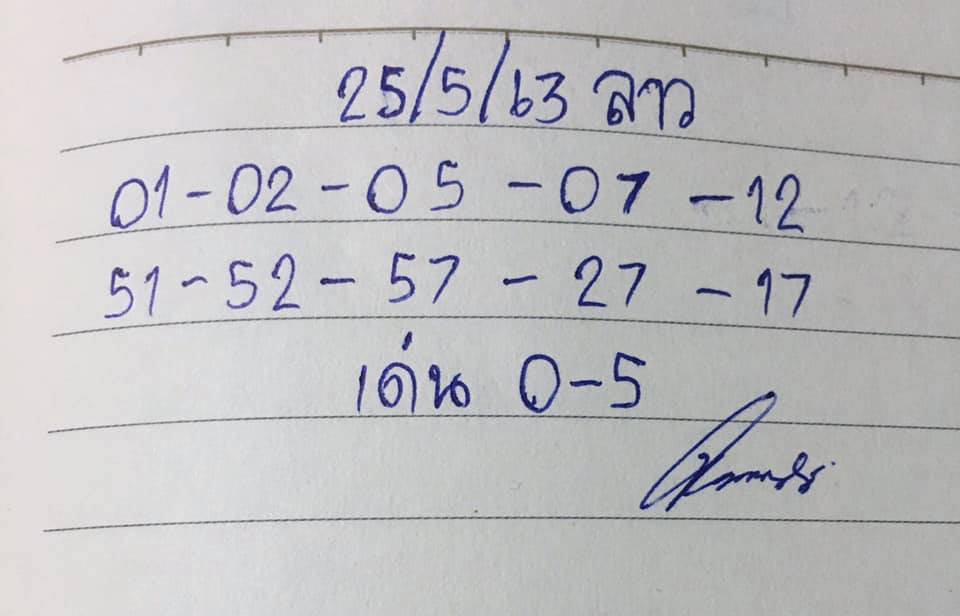 25/5/63 ลาว
01-02-05-07-12
51-52-57-27-17
เด่น 0-5